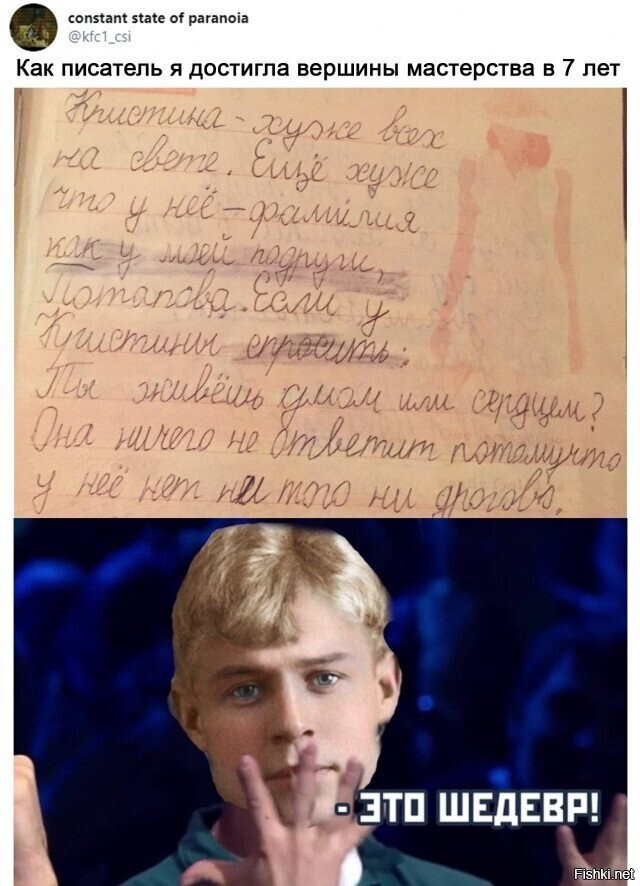 constant state of paranoia
@kfc1_csi
Как писатель я достигла вершины мастерства в 7 лет
Кристина - хуже всех
на свете. Ещё хуже
что у неё - фамилия,
как у моей подруги,
Потапова. Если у
Кристины спросить:
Ты живёшь умом или сердцем?
Она ничего не ответит потомучто
у неё нет ни того ни дрогова.
- ЭТО ШЕДЕВР!
Fishki.net